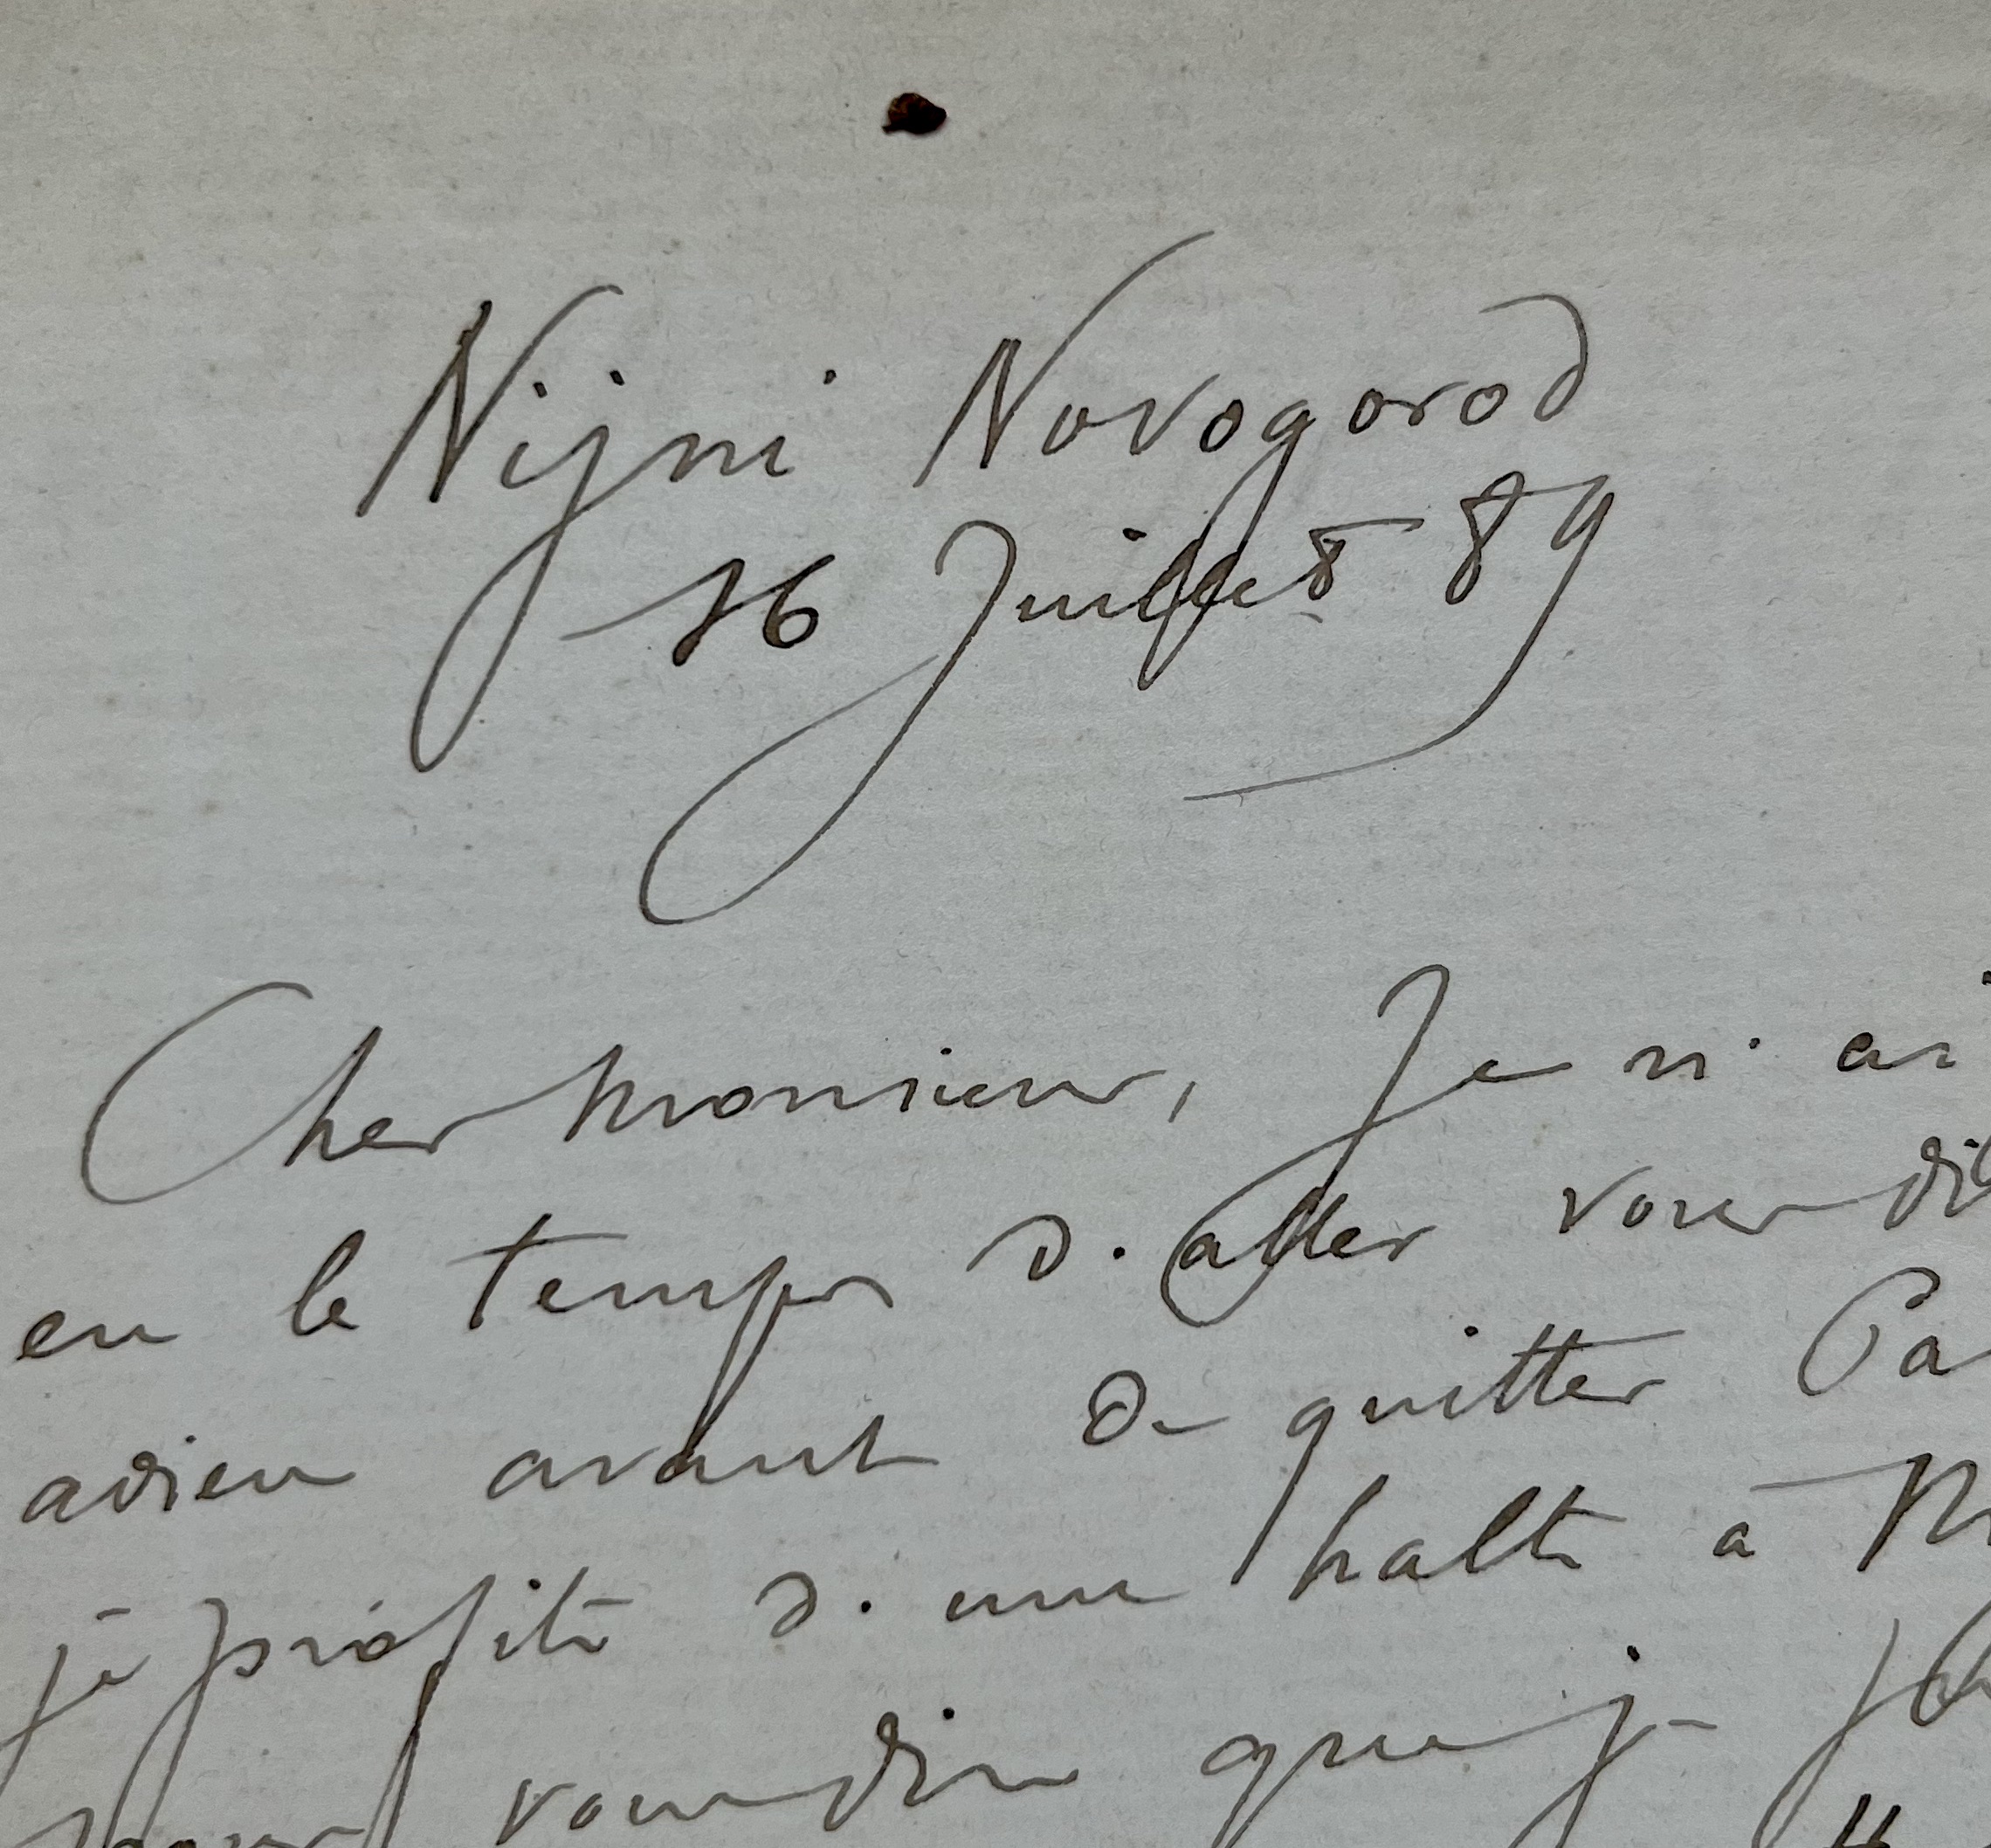 Nijni Novogorod
16 Juillet 89
Cher Monsieur, Je n'ai
eu le temps d'aller vous di
adieu avant de quitter Pa
je profite d'une halte à N
pour vous dire que je